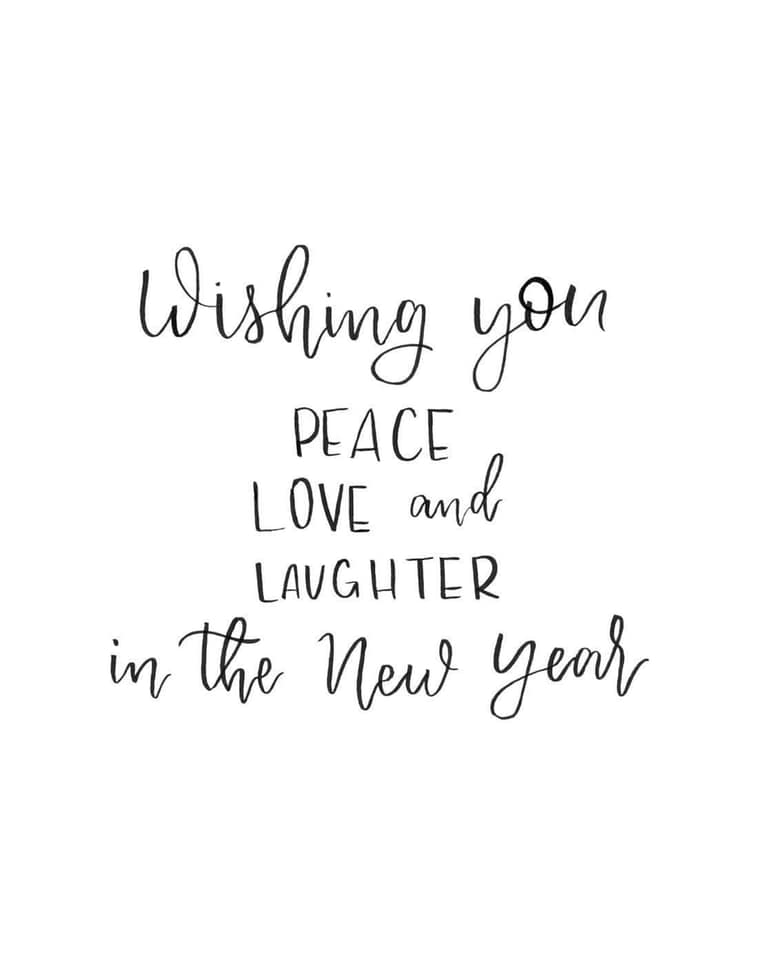 Wishing you
PEACE
LOVE and
LAUGHTER
in the New Year